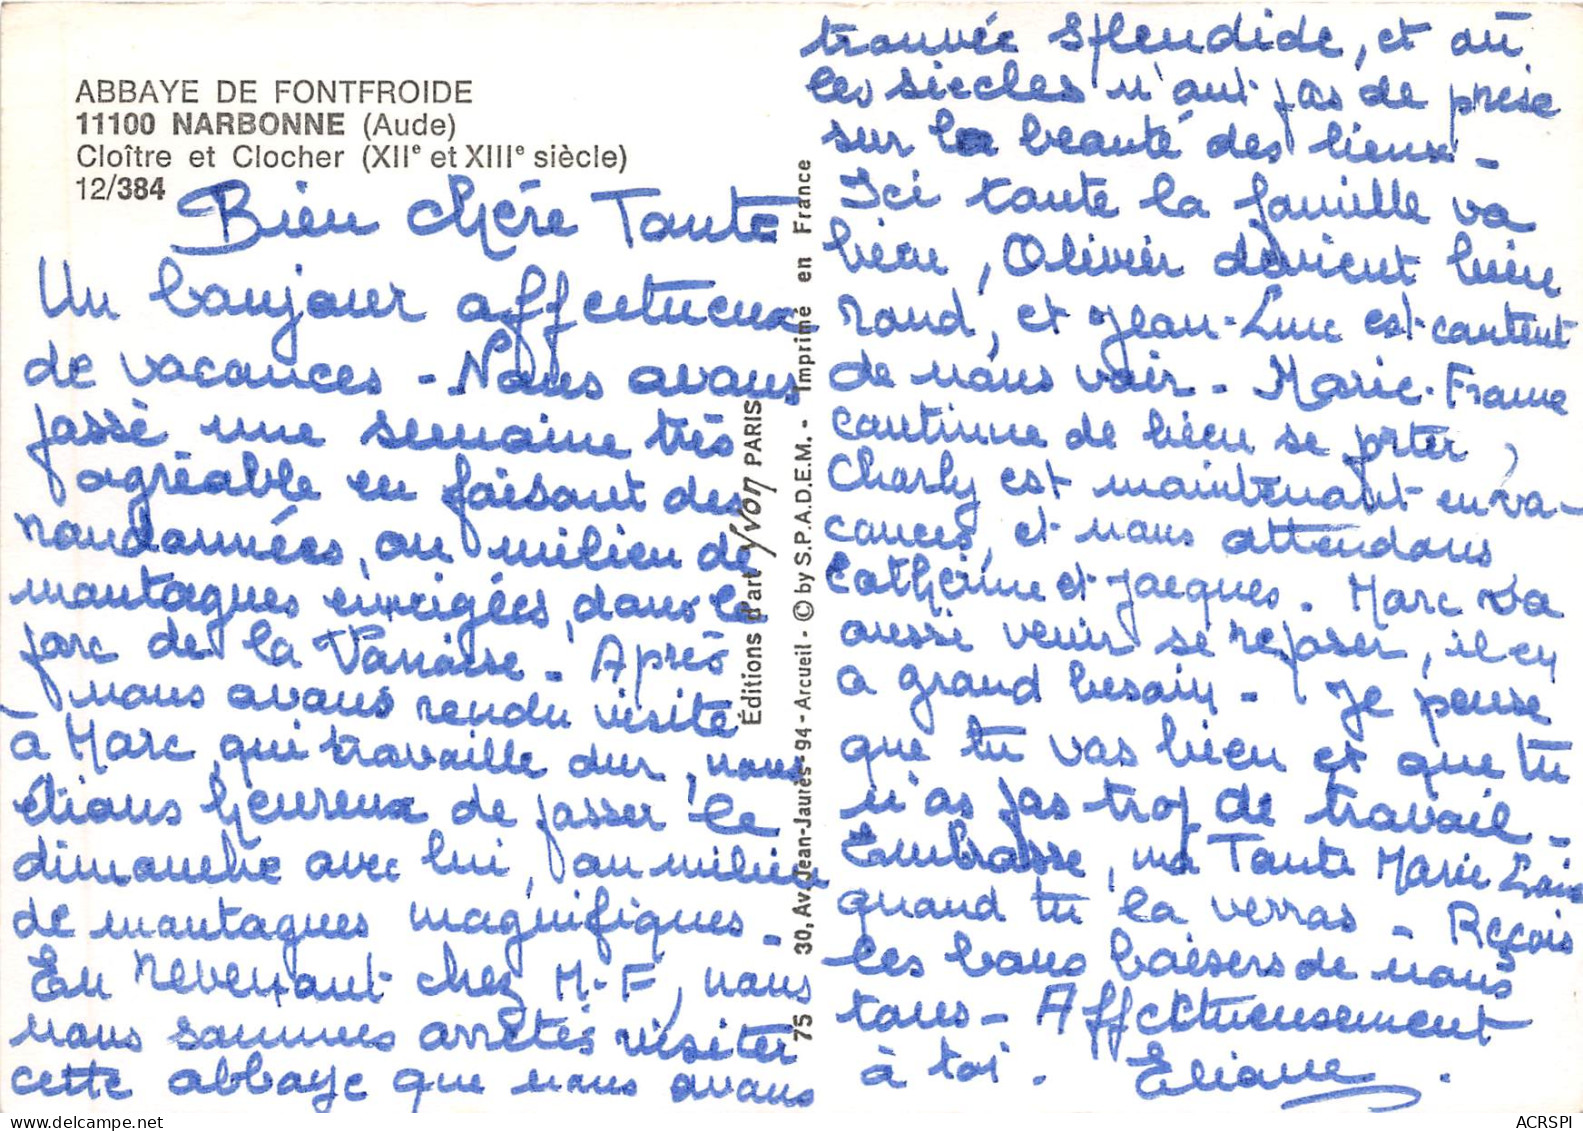 ABBAYE DE FONTFROIDE
11100 NARBONNE (Aude)
Cloître et Clocher (XIIe et XIIIe siècle)
12/384
Bien chère Tante
Un bonjour affectueux
de vacances - Nous avons
passé une semaine très
agréable en faisant des
randonnées, au milieu de
montagnes enneigées, dans le
parc de la Vanoise - Après
nous avons rendu visite
à Marc, qui travaille dur, nous
étions heureux de passer le
dimanche avec lui, au milieu
de montagnes magnifiques -
En revenant chez M.-F, nous
nous sommes arrêtés visiter
cette abbaye que nous avons
Éditions d'art Yvon PARIS
75 30, Av. Jean-Jaurès - 94 - Arcueil - © by S.P.A.D.E.M. - Imprimé en France
trouvée splendide, et où
les siècles n'ont pas de prise
sur la beauté des lieux -
Ici toute la famille va
bien, Olivier devient bien
rond, et Jean-Luc est content
de nous voir - Marie-France
continue de bien se pter,
Charly est maintenant en va-
cances, et nous attendons
Catherine et Jacques. Marc va
aussi venir se reposer, il en
a grand besoin - Je pense
que tu vas bien et que tu
n'as pas trop de travail -
Embrasse, ma Tante Marie Loui
quand tu la verras - Reçois
les bons baisers de nous
tous - Affectueusement
à toi. Eliane.
ACRSPI